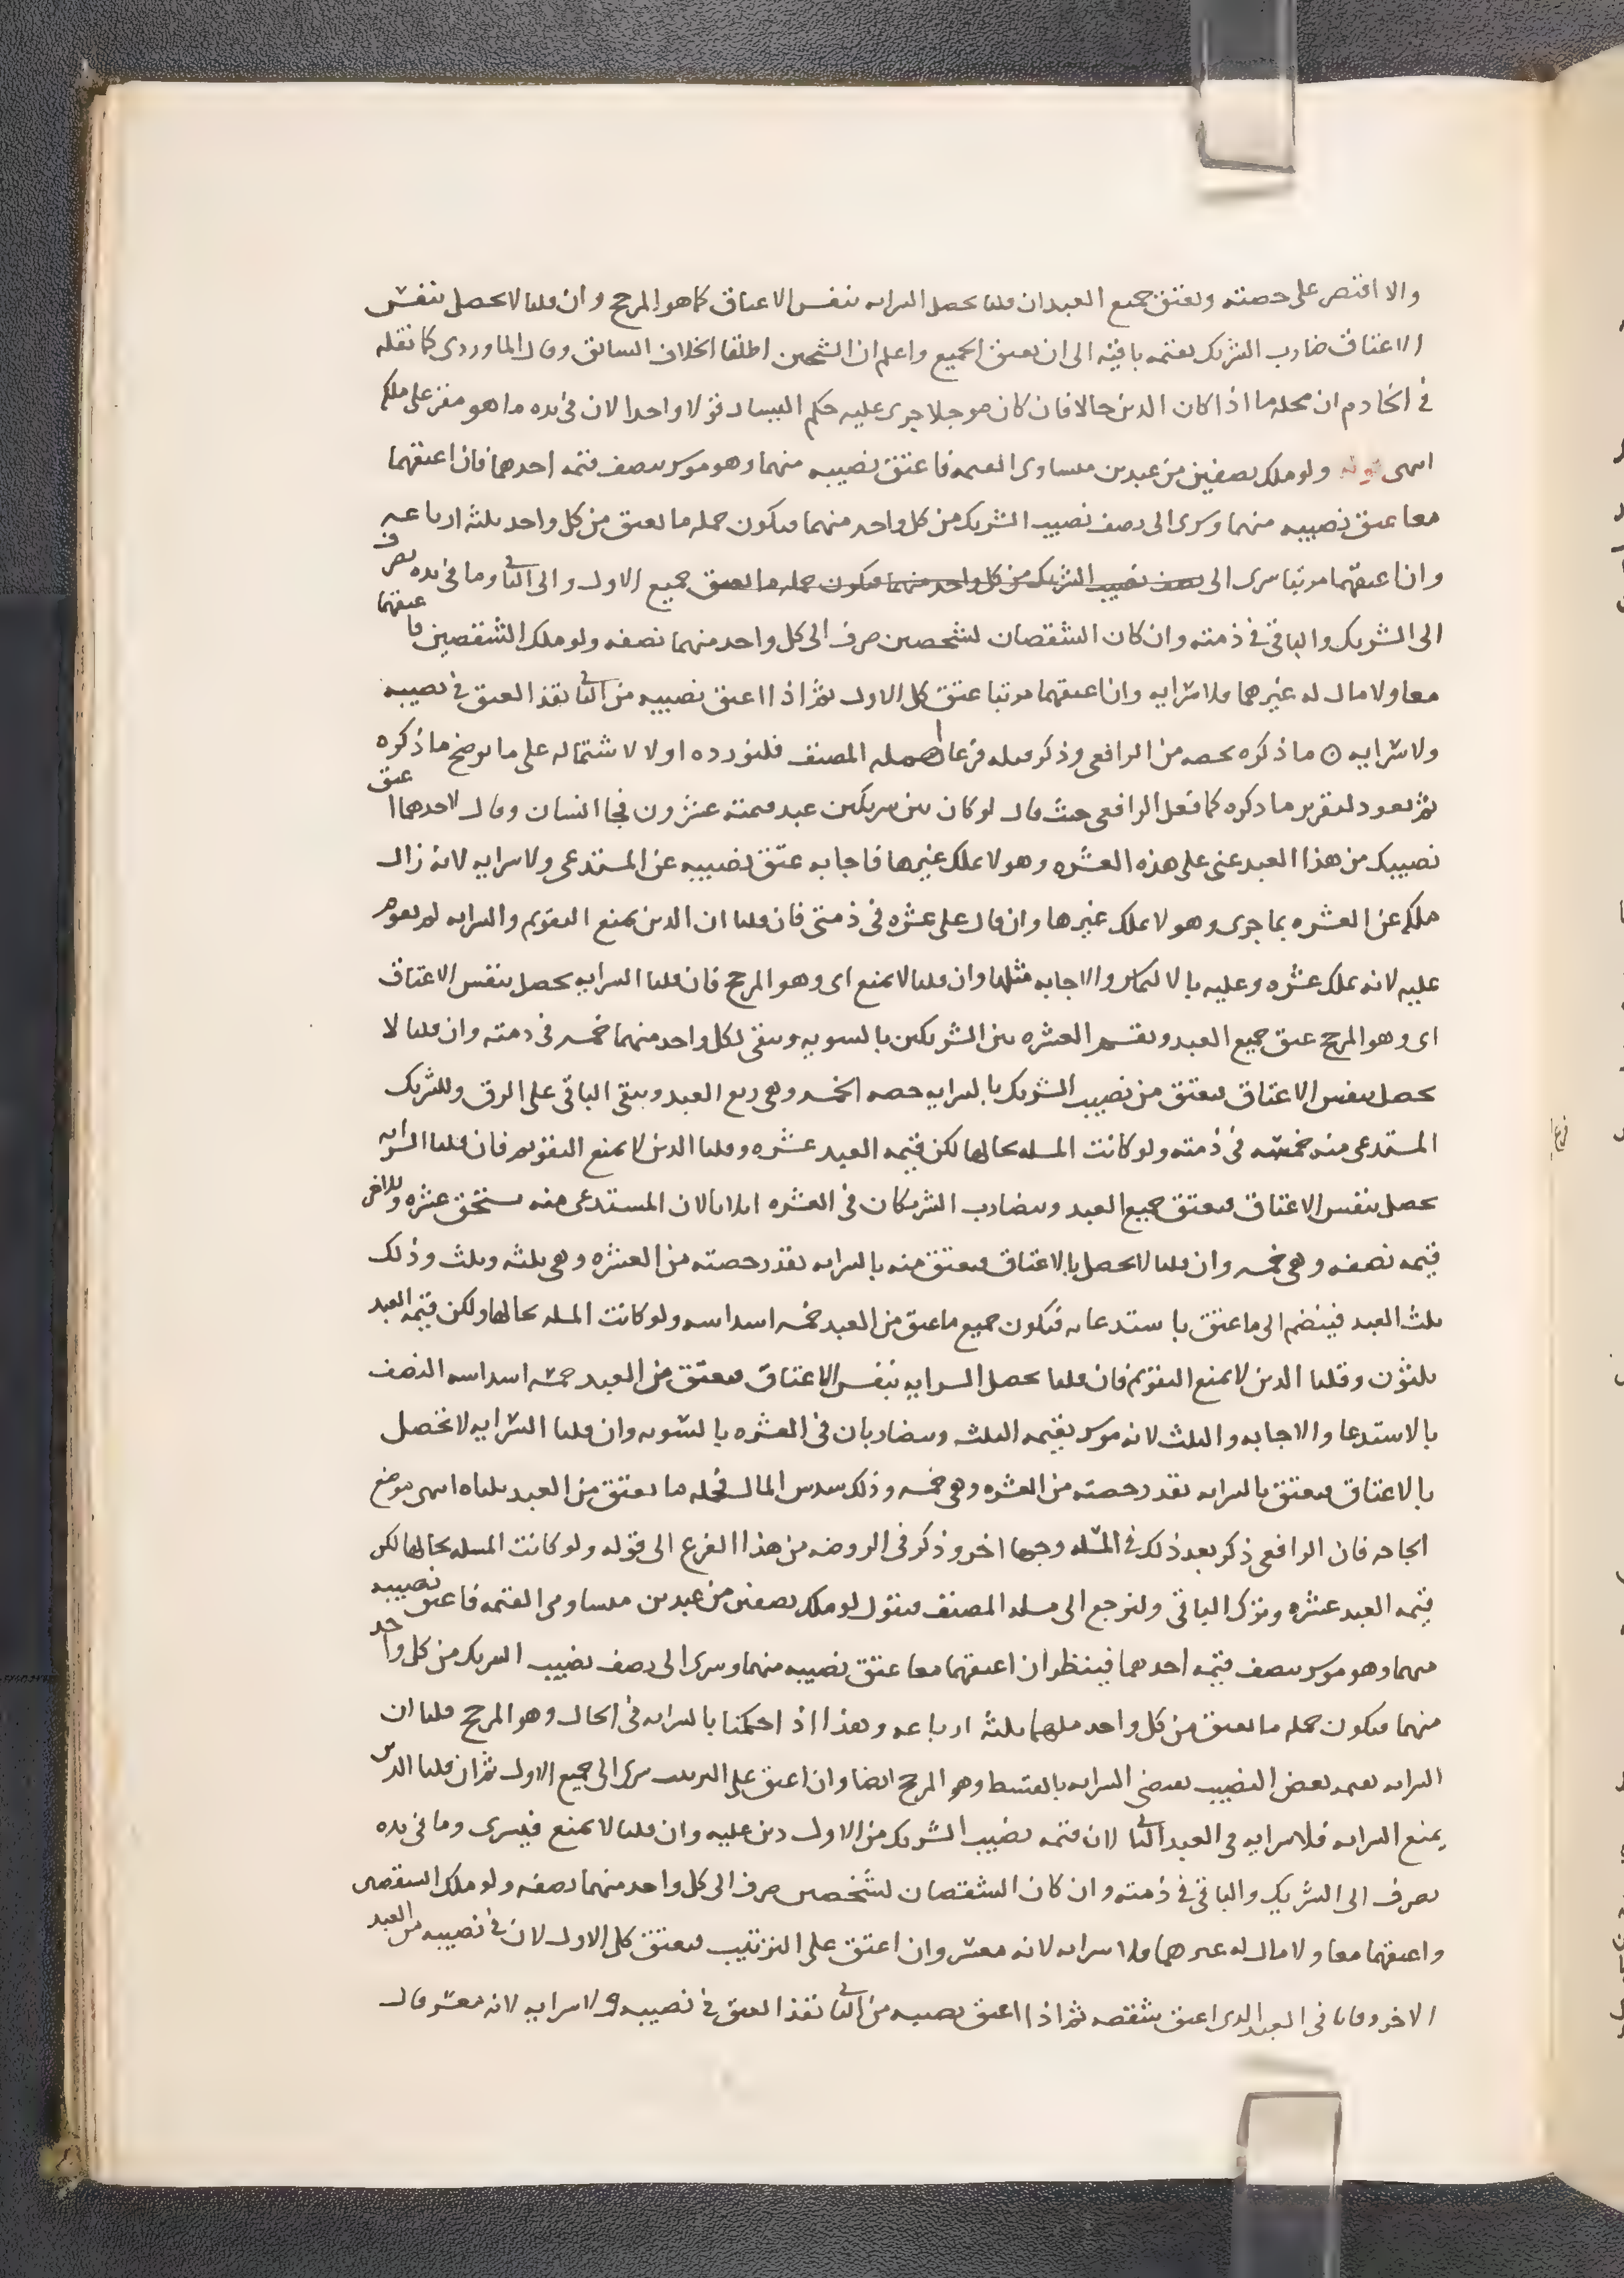 والا اقتصر على حصته ويعتق جميع العبد ان قلنا يحصل السرايه بنفس الاعتاق كما هو المرجح وان قلنا لا يحصل بنفس
الاعتاق ضارب الشريك بقيمه باقيه الى ان يعتق الجميع واعلم ان الشيخين اطلقا الخلاف السابق وقال الماوردى كما نقله
فى الخادم ان محله ما اذا كان الدين حالا فان كان موجلا جرى عليه حكم اليسار قولا واحدا لان فى يده ما هو مقر على ملكه
انتهى قوله ولو ملك نصفين من عبدين متساوى القيمه فاعتق نصيبه منهما وهو موسر بنصف قيمه احدهما فان اعتقهما
معا عتق نصيبه منهما وسرى الى نصف نصيب الشريك من كل واحد منهما فيكون جمله ما يعتق من كل واحد ثلثه ارباعه
وان اعتقهما مرتبا سرى الى نصف نصيب الشريك من كل واحد منهما فيكون جمله ما يعتق جميع الاول والى الثانى وما فى يده يصرف
الى الشريك والباقى فى ذمته وان كان الشقصان لشخصين صرف الى كل واحد منهما نصفه ولو ملك الشقصين فاعتقهما
معا ولا مال له غيرهما فلا سرايه وان اعتقهما مرتبا عتق كل الاول ثم اذا اعتق نصيبه من الثانى نفذ العتق فى نصيبه
ولا سرايه ⊙ ما ذكره لخصه من الرافعى وذكر قبله فرعا اهمله المصنف فلنورده اولا لاشتماله على ما يوضح ما ذكره
ثم نعود لتقرير ما ذكره كما فعل الرافعى حيث قال لو كان بين شريكين عبد قيمته عشرون فجا انسان وقال لاحدهما اعتق
نصيبك من هذا العبد عنى على هذه العشره وهو لا يملك غيرها فاجابه عتق نصيبه عن المستدعى ولا سرايه لانه زال
ملكه عن العشره بما جرى وهو لا يملك غيرها وان قال على عشره فى ذمتى فان قلنا ان الدين يمنع التقويم والسرايه لم يقوم
عليه لانه يملك عشره وعليه بالالتماس والاجابه مثلها وان قلنا لا يمنع اى وهو المرجح فان قلنا السرايه يحصل بنفس الاعتاق
اى وهو المرجح عتق جميع العبد ويقسم العشره بين الشريكين بالسويه ويبقى لكل واحد منهما خمسه فى ذمته وان قلنا لا
يحصل بنفس الاعتاق فيعتق من نصيب الشريك بالسرايه حصه الخمسه وهى ربع العبد ويبقى الباقى على الرق وللشريك
المستدعى منه خمسه فى ذمته ولو كانت المسله بحالها لكن قيمه العبد عشره وقلنا الدين لا يمنع التقويم فان قلنا السرايه
يحصل بنفس الاعتاق فيعتق جميع العبد ويتضارب الشريكان فى العشره اثلاثا لان المستدعى منه يستحق عشره وللاخر
قيمه نصفه وهى خمسه وان قلنا لا يحصل بالاعتاق فيعتق منه بالسرايه بقدر حصته من العشره وهى ثلثه وثلث وذلك
ثلث العبد فينضم الى ما عتق باستدعائه فيكون جميع ما عتق من العبد خمسه اسداسه ولو كانت المسله بحالها ولكن قيمه العبد
ثلثون وقلنا الدين لا يمنع التقويم فان قلنا يحصل السرايه بنفس الاعتاق فيعتق من العبد خمسه اسداسه النصف
بالاستدعا والاجابه والثلث لانه موسر بقيمه الثلث ويتضاربان فى العشره بالسويه وان قلنا السرايه لا تحصل
بالاعتاق فيعتق بالسرايه بقدر حصته من العشره وهى خمسه وذلك سدس المال فجمله ما يعتق من العبد ثلثاه انتهى موضع
الحاجه فان الرافعى ذكر بعد ذلك فى المسله وجها اخر وذكر فى الروضه من هذا الفرع الى قوله ولو كانت المسله بحالها لكن
قيمه العبد عشره وترك الباقى ولنرجع الى مسله المصنف فنقول لو ملك نصفين من عبدين متساوى القيمه فاعتق نصيبه
منهما وهو موسر بنصف قيمه احدهما فينظر ان اعتقهما معا عتق نصيبه منهما وسرى الى نصف نصيب الشريك من كل واحد
منهما فيكون جمله ما يعتق من كل واحد منهما ثلثه ارباعه وهذا اذا حكمنا بالسرايه فى الحال وهو المرجح قلنا ان
السرايه بقيمه بعض النصيب بعض السرايه بالقسط وهو المرجح ايضا وان اعتق على الترتيب سرى الى جميع الاول ثم ان قلنا الدين
يمنع السرايه فلا سرايه فى العبد الثانى لان قيمه نصيب الشريك من الاول دين عليه وان قلنا لا يمنع فيسرى وما فى يده
يصرف الى الشريك والباقى فى ذمته وان كان الشقصان لشخصين صرف الى كل واحد منهما نصفه ولو ملك الشقصين
واعتقهما معا ولا مال له غيرهما فلا سرايه لانه معسر وان اعتق على الترتيب فيعتق كل الاول لان فى نصيبه من العبد
الاخر وفا بباقى العبد الذى اعتق شقصه ثم اذا اعتق نصيبه من الثانى نفذ العتق فى نصيبه ولا سرايه لانه معسر قال
فرع